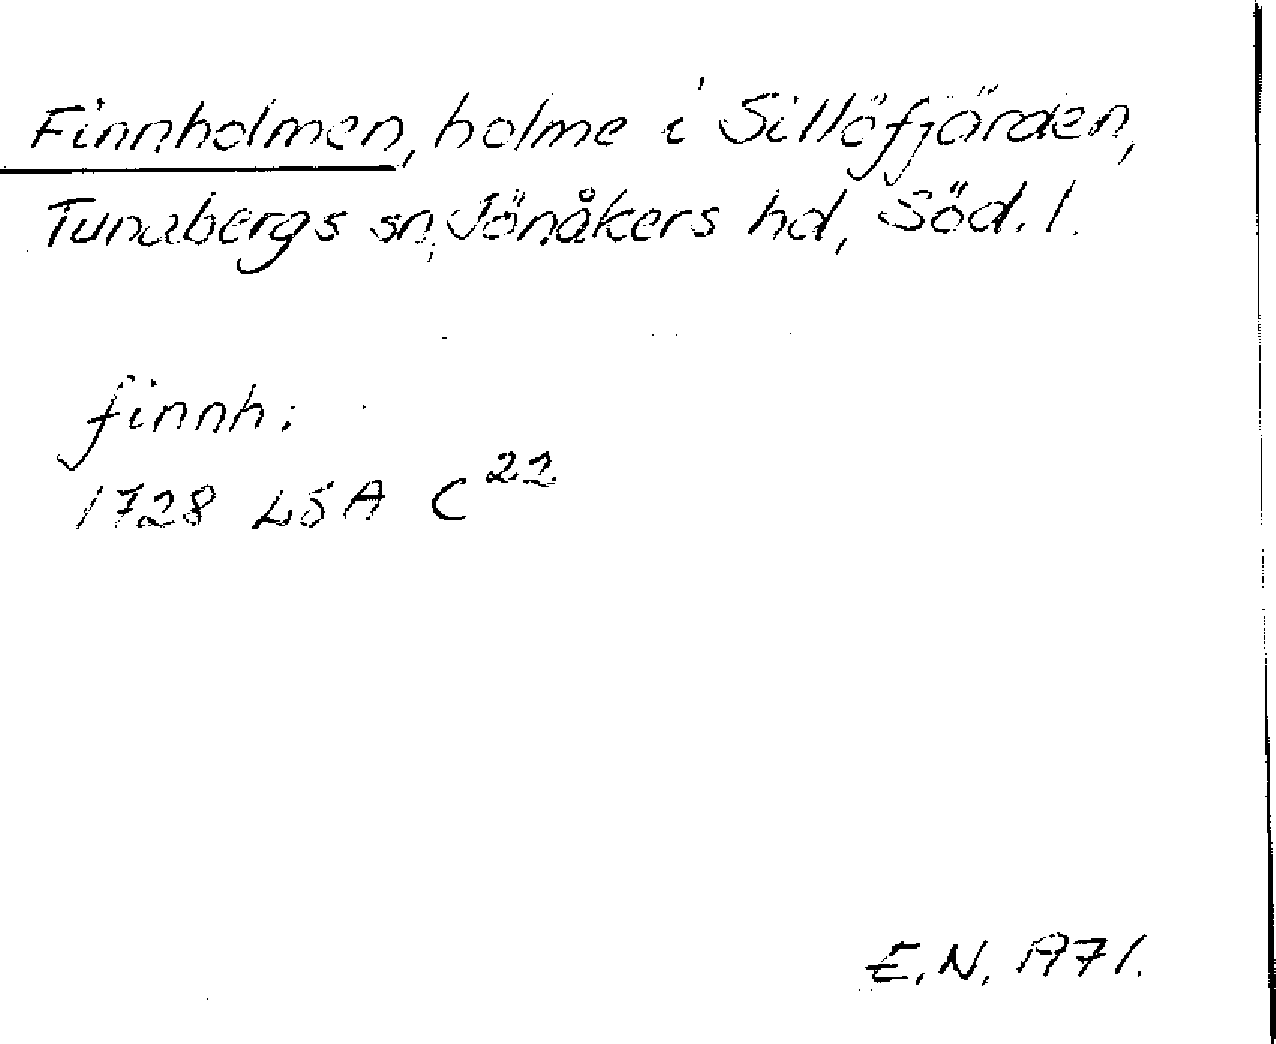 Finnholmen, holme i Sillöfjärden,
Tunabergs sn, Jönåkers hd, Söd. l.
finnh:
1728 LSA C 22
E.N. 1971.